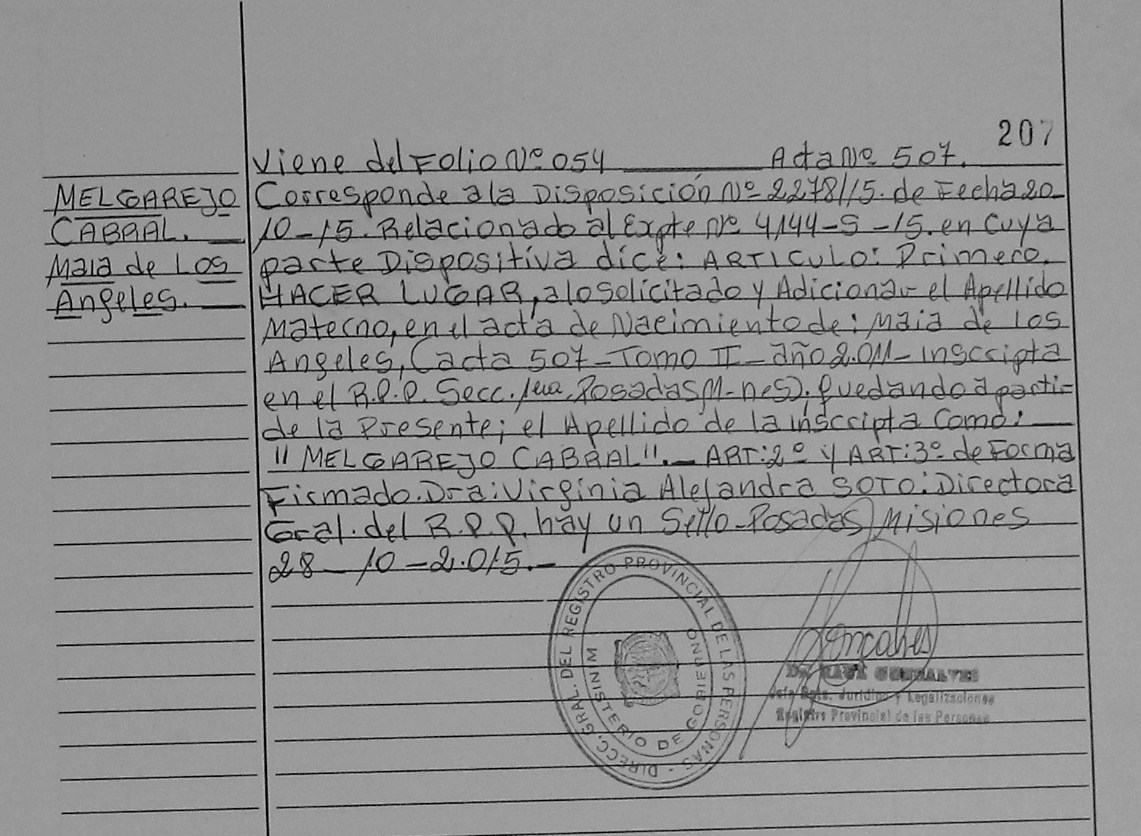 207
Viene del Folio Nº 054 Acta Nº 507.
MELGAREJO
CABRAL.
Maia de Los
Angeles.
Corresponde a la Disposición Nº 2278/15. de Fecha 20
10-15. Relacionado al Expte Nº 4144-S-15. en Cuya
parte Dispositiva dice: ARTICULO: Primero.
HACER LUGAR, a lo Solicitado y Adicionar el Apellido
Materno, en el acta de Nacimiento de: Maia de los
Angeles, (acta 507-Tomo II-año 2.011-inscripta
en el R.P.P. Secc. 1era. Posadas M-nes). quedando a partir
de la Presente; el Apellido de la inscripta Como:
"MELGAREJO CABRAL".- ART: 2º y ART: 3º de Forma
Firmado. Dra: Virginia Alejandra SOTO: Directora
Gral. del R.P.P. hay un Sello-Posadas, Misiones
28-10-2.015.-
DIRECC. GRAL. DEL REGISTRO PROVINCIAL DE LAS PERSONAS -
MINISTERIO DE GOBIERNO
Goncalves
GONSALVES
Jurídico y Legalizaciones
Registro Provincial de las Personas